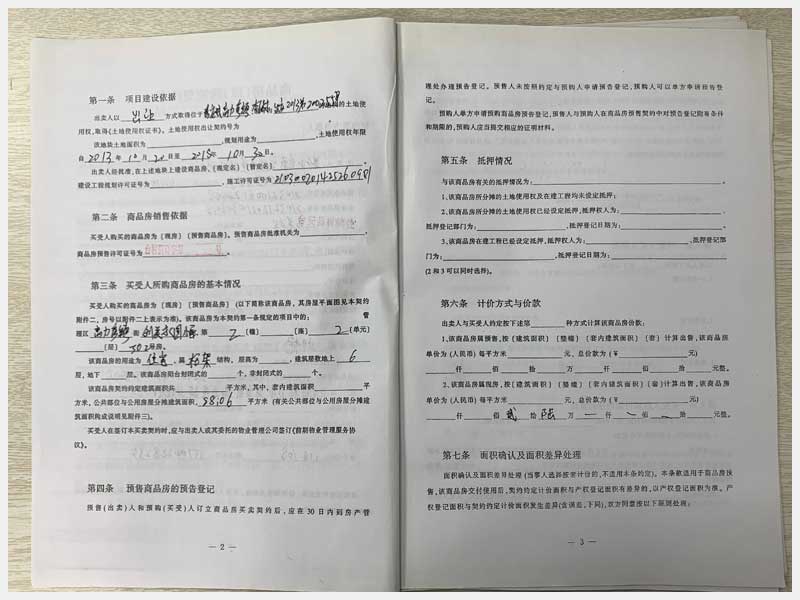 第一条 项目建设依据
出卖人以 出让 方式取得位于 的土地使
用权,取得《土地使用权证书》。土地使用权出让契约号为
该地块土地面积为 ,规划用途为 ,土地使用权年限
自 2013 年 10 月 日至 年 10 月 日。
出卖人经批准,在上述地块上建设商品房,〔现定名〕〔暂定名〕 。
建设工程规划许可证号为 ,施工许可证号为
第二条 商品房销售依据
买受人购买的商品房为〔现房〕〔预售商品房〕。预售商品房批准机关为 ,
商品房预售许可证号为 。
第三条 买受人所购商品房的基本情况
买受人购买的商品房为〔现房〕〔预售商品房〕(以下简称该商品房,其房屋平面图见本契约
附件二,房号以附件二上表示为准)。该商品房为本契约第一条规定的项目中的: 管
理区 街 第 2 〔幢〕 〔座〕 2 〔单元〕
〔层〕 302 号房。
该商品房的用途为 住宅 ,属 框架 结构,层高为 ,建筑层数地上 6
层,地下 层。该商品房阳台封闭式的 个,非封闭式的 个。
该商品房契约约定建筑面积共 平方米,其中,套内建筑面积 平
方米,公共部位与公用房屋分摊建筑面积 98.06 平方米(有关公共部位与公用房屋分摊建
筑面积构成说明见附件三)。
买受人在签订本买卖契约时,应与出卖人或其委托的物业管理公司签订《前期物业管理服务协
议》。
第四条 预售商品房的预告登记
预售(出卖)人和预购(买受)人订立商品房买卖契约后,应在30日内到房产管
— 2 —
理处办理预告登记。预售人未按照约定与预购人申请预告登记,预购人可以单方申请预告登
记。
预购人单方申请预购商品房预告登记,预售人与预购人在商品房预售契约中对预告登记附有条件
和期限的,预购人应当提交相应的证明材料。
第五条 抵押情况
与该商品房有关的抵押情况为: 。
1、该商品房所分摊的土地使用权及在建工程均未设定抵押;
2、该商品房所分摊的土地使用权已经设定抵押,抵押权人为: ,
抵押登记部门为: ,抵押登记日期为: 。
3、该商品房在建工程已经设定抵押,抵押权人为: ,抵押登记部
门为: ,抵押登记日期为: 。
(2和3可以同时选择)。
第六条 计价方式与价款
出卖人与买受人约定按下述第 种方式计算该商品房价款:
1、该商品房属预售,按〔建筑面积〕〔整幢〕〔套内建筑面积〕〔套〕计算出售,该商品房
单价为(人民币)每平方米 元,总价款为(¥ 元)
仟 佰 拾 万 仟 佰 拾 元整。
2、该商品房属现房,按〔建筑面积〕〔整幢〕〔套内建筑面积〕〔套〕计算出售,该商品房
单价为(人民币)每平方米 元,总价款为(¥ 元)
仟 佰 贰 拾 陆 万 仟 佰 拾 元整。
第七条 面积确认及面积差异处理
面积确认及面积差异处理(当事人选择按套计价的,不适用本条约定)。本条款适用于商品房预
售,该商品房交付使用后,契约约定计价面积与产权登记面积有差异的,以产权登记面积为准。产
权登记面积与契约约定计价面积发生差异(含误差,下同),双方同意按以下原则处理:
— 3 —